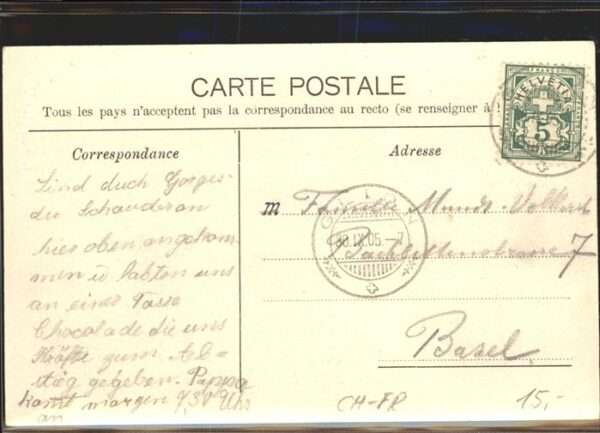 CARTE POSTALE
Tous les pays n'acceptent pas la correspondance au recto (se renseigner à
HELVETIA
5
Correspondance
Adresse
Sind duch Gorges
du Schauderon
hier oben angekom
men u labten uns
an einer Tasse
Chocolade die uns
Kräfte zum Ab=
stieg gegeben.
komt morgen 7 30 Uhr
an
m Familie
7
Basel
IX.05 – 7
CH-FR
15,-